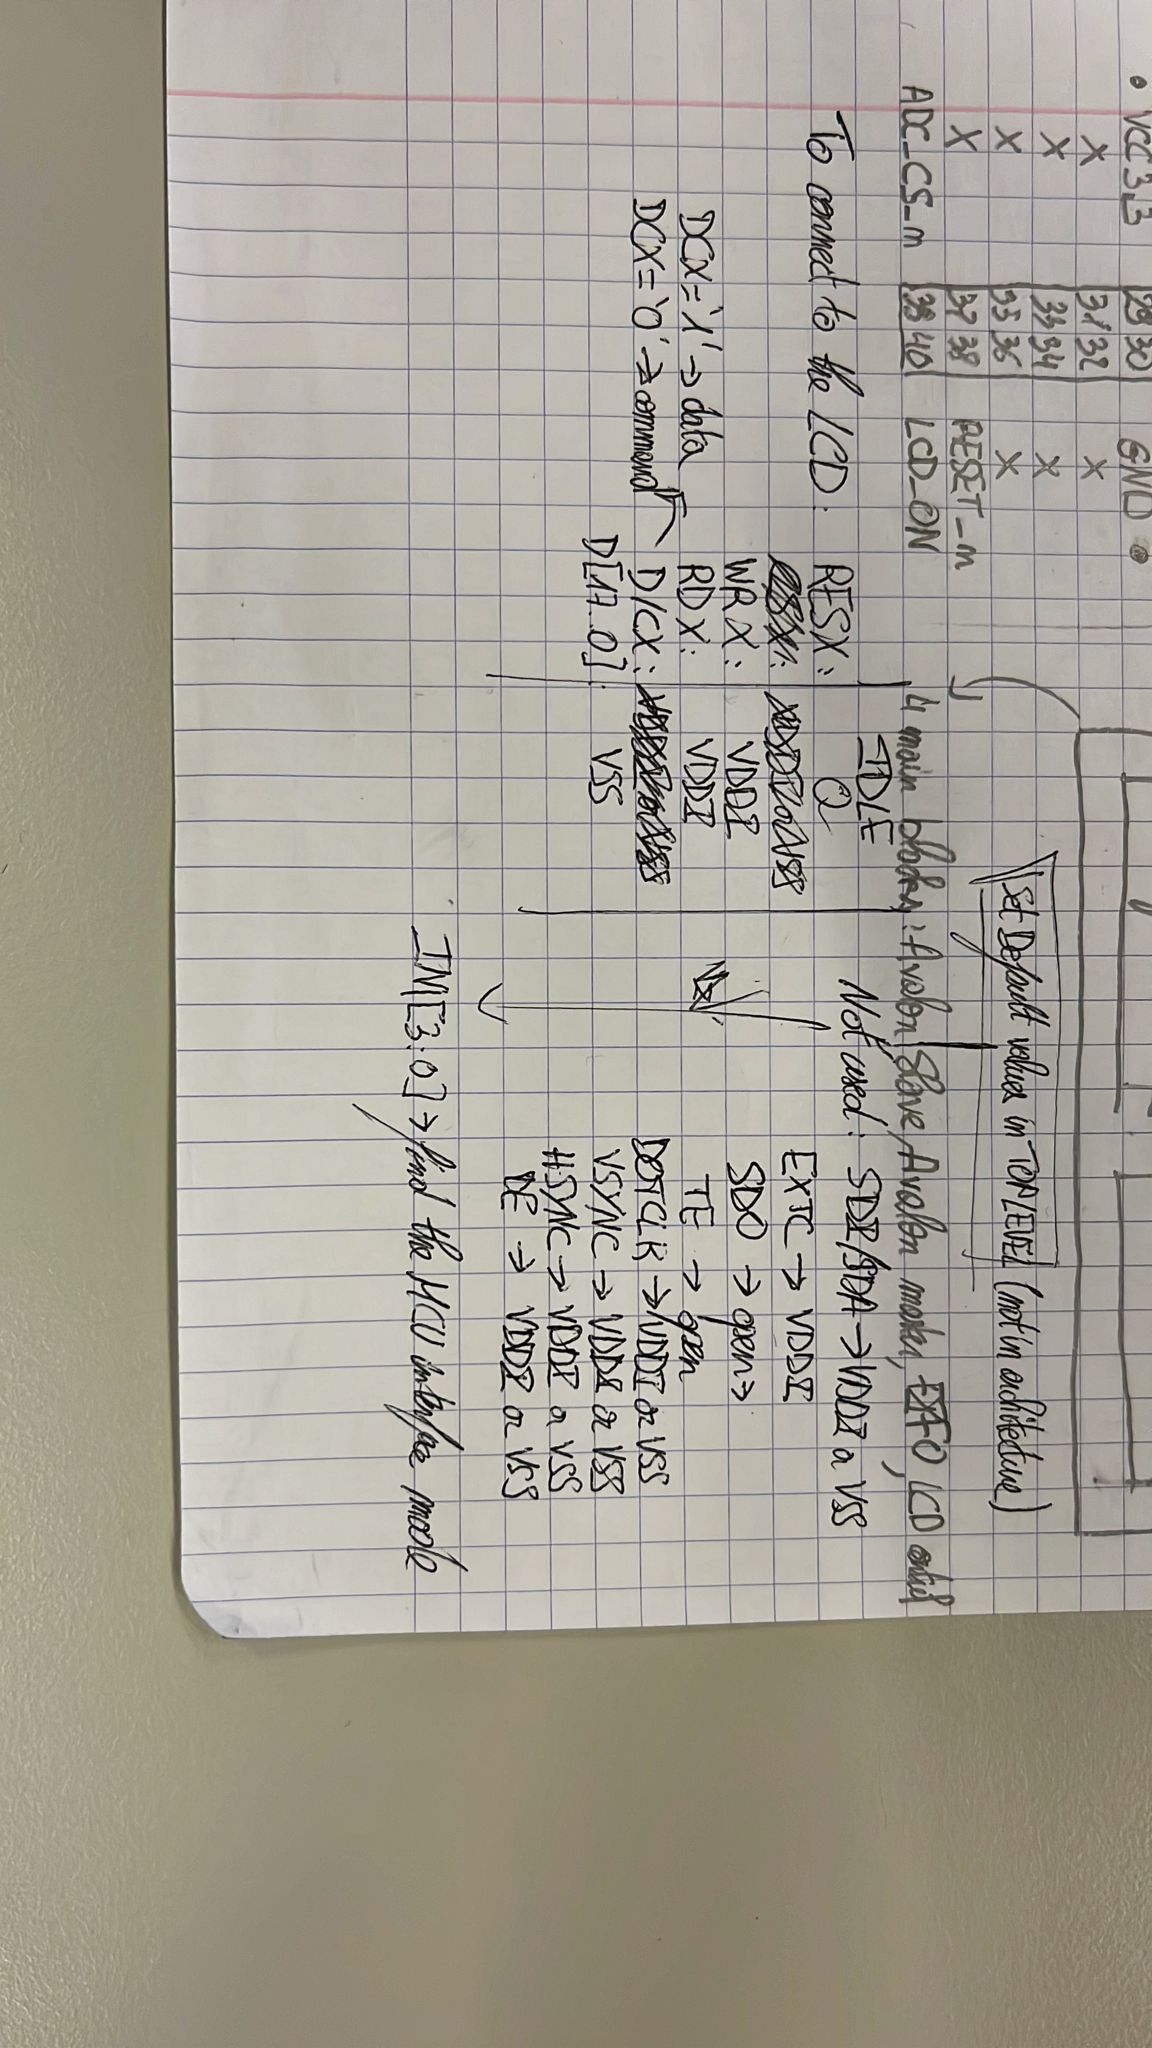 VCC3.3 29 30 GND
X 31 32 X
X 33 34 X
X 35 36 X
X 37 38 RESET_m
ADC_CS_m 39 40 LCD_ON
Set Default values in TOPLEVEL (not in architecture)
4 main blocks: Avalon Slave, Avalon master, FIFO, LCD control
To connect to the LCD:
IDLE
RESX:
WRX: VDDI
RDX: VDDI
D/CX:
D[17..0]: VSS
DCX='1' → data
DCX='0' → command
Not used: SDI/SDA → VDDI or VSS
EXTC → VDDI
SDO → open
TE → open
DOTCLK → VDDI or VSS
VSYNC → VDDI or VSS
HSYNC → VDDI or VSS
DE → VDDI or VSS
IM[3:0] → find the MCU interface mode